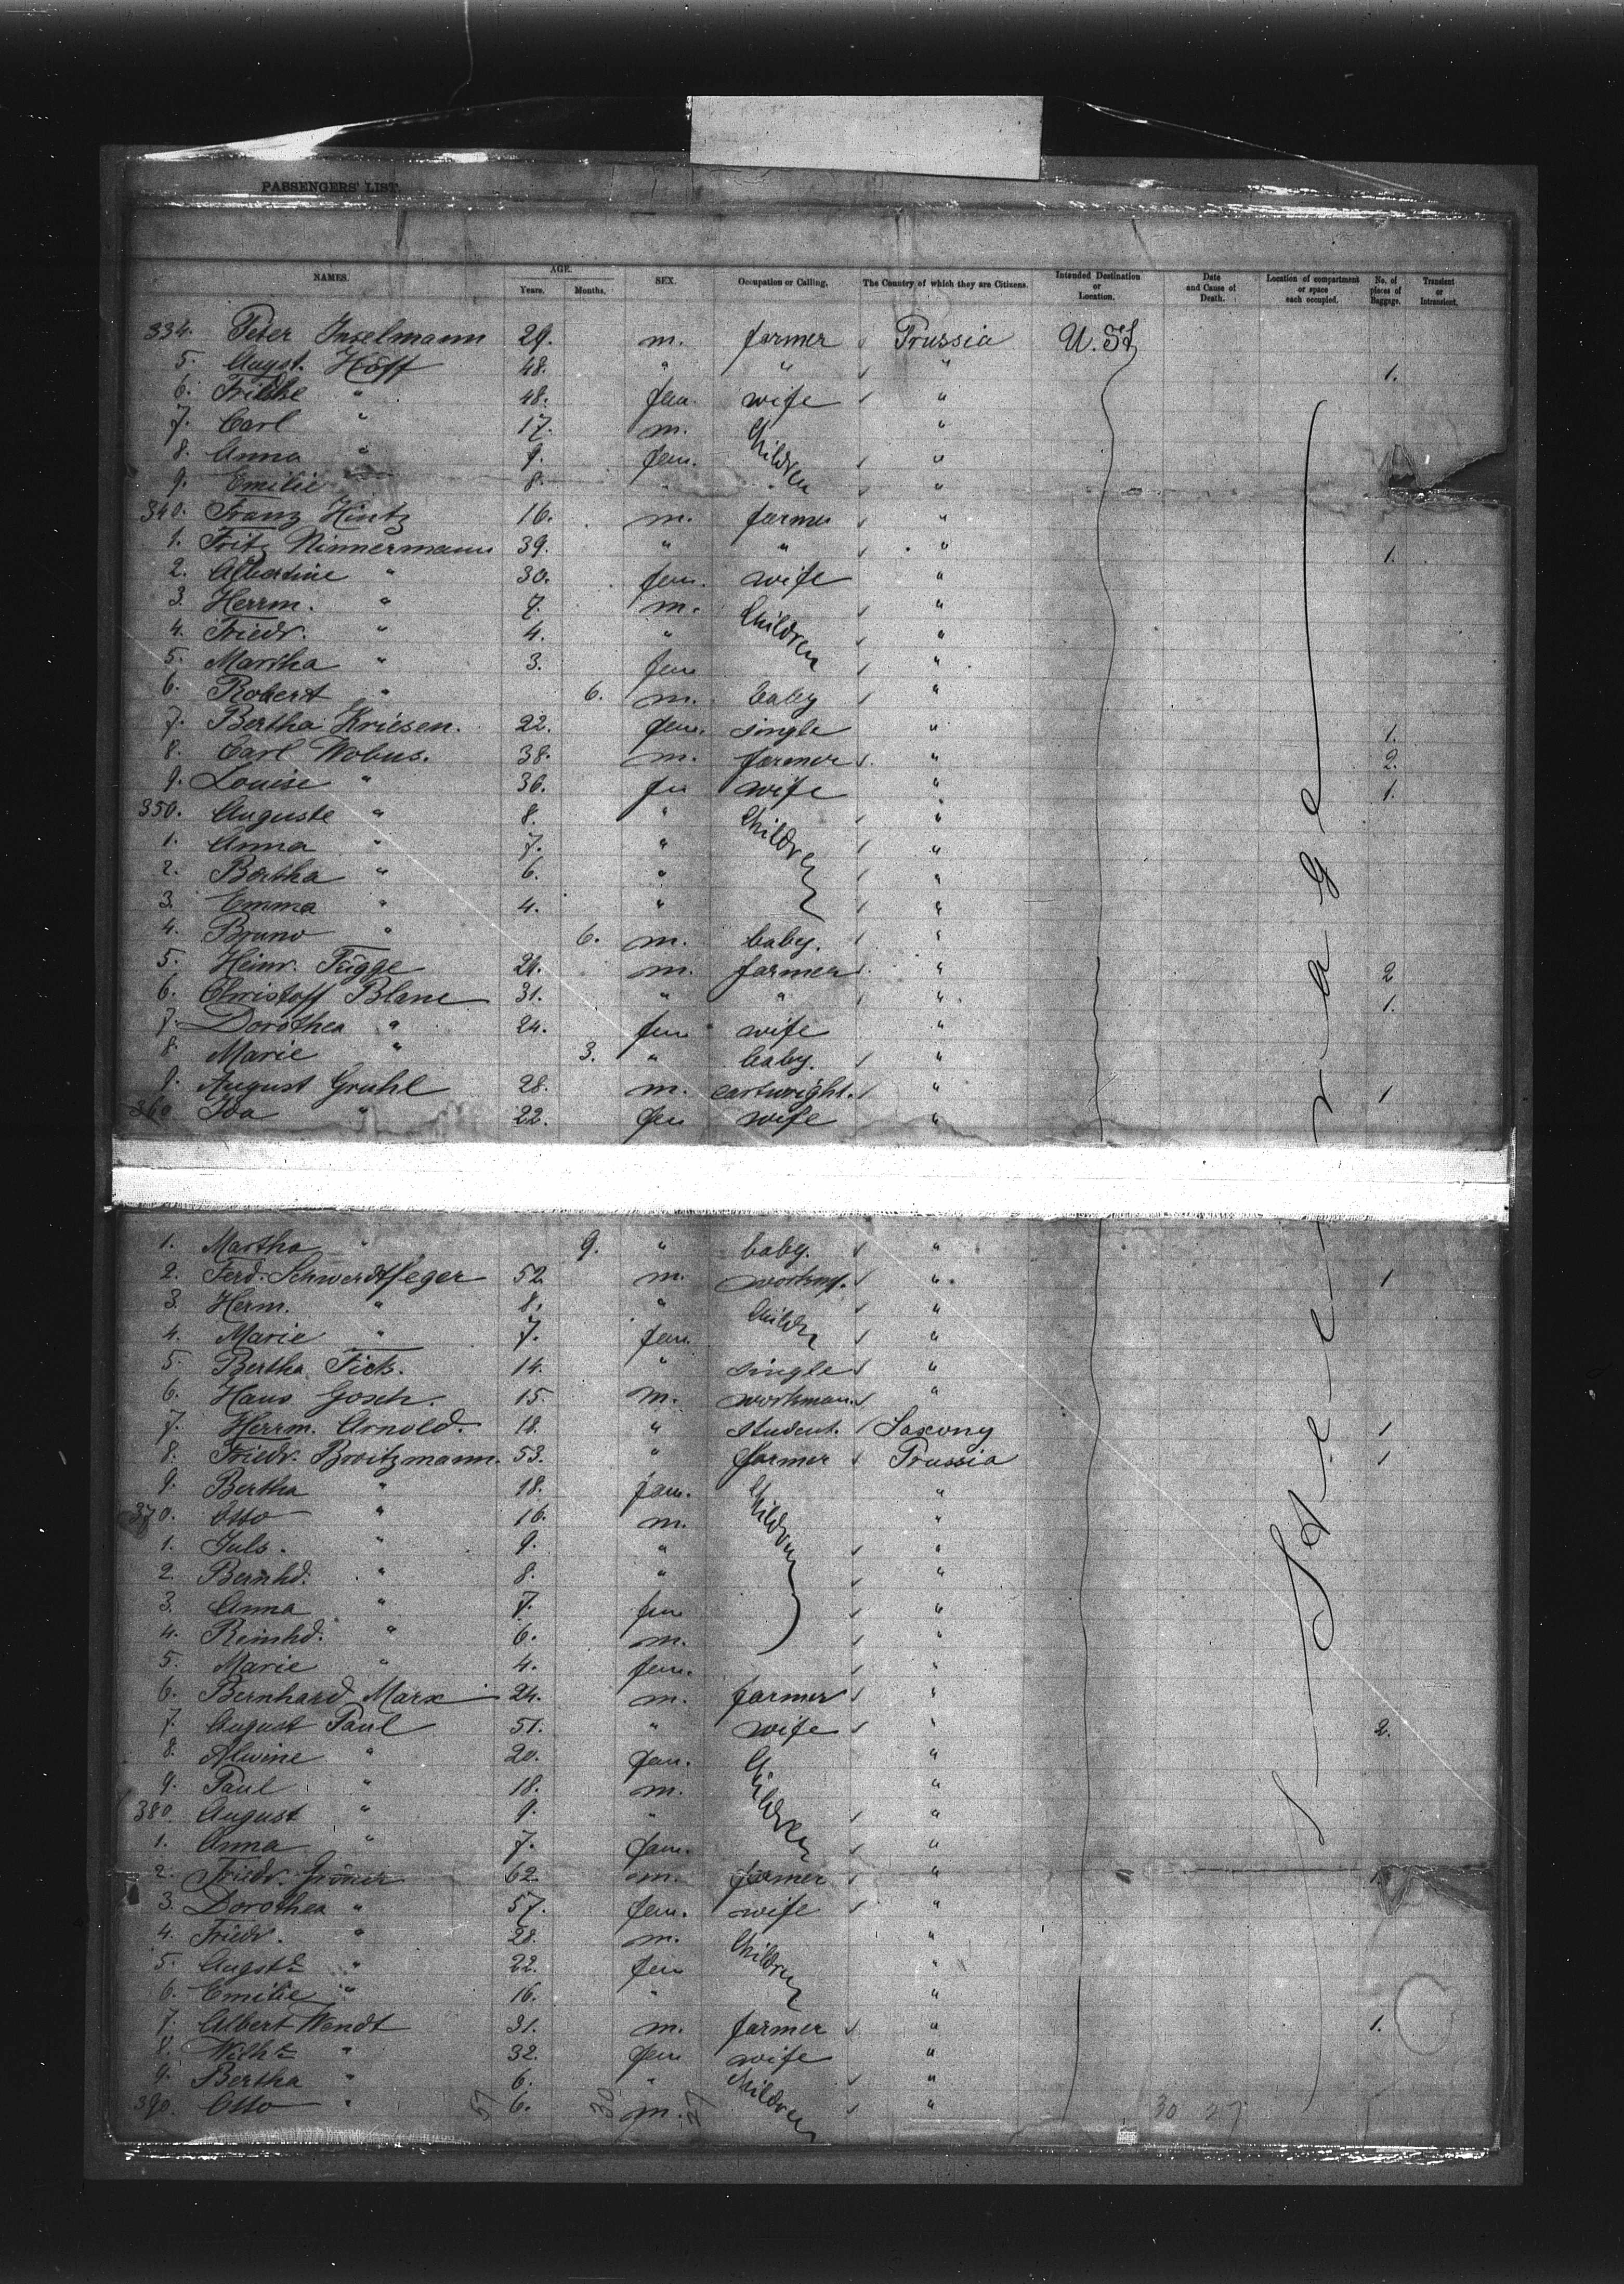 PASSENGERS' LIST.
NAMES. AGE. Years. Months. SEX. Occupation or Calling. The Country of which they are Citizens. Intended Destination or Location. Date and Cause of Death. Location of compartment or space each occupied. No. of pieces of Baggage. Transient or Intransient.
334. Peter Inselmann 29. m. farmer Prussia U. St
5. Augst. Höff 48. " " " 1.
6. " 48. fem. wife "
7. Carl " 17. m. Children "
8. Anna " 9. fem. "
9. Emilie 8. " "
340. Franz Hintz 16. m. farmer "
1. Fritz Ninnermann 39. " " " 1.
2. Albertine " 30. fem. wife "
3. Herrm. " 7. m. Children "
4. Friedr. " 4. " "
5. Martha " 3. fem "
6. Robert " 6. m. baby "
7. Bertha Kriesen. 22. fem. single " 1.
8. Carl Wobus. 38. m. farmer " 2.
9. Louise " 36. fe wife " 1.
350. Auguste " 8. " Children "
1. Anna " 7. " "
2. Bertha " 6. " "
3. Emma " 4. " "
4. Bruno " 6. m. baby. "
5. Heinr. Tügge 21. m. farmer " 2
6. Christoff Blanc 31. " " " 1.
7. Dorothea " 24. fem wife "
8. Marie " 3. " baby. "
9. August Gruhl 28. m. cartwright. " 1
360 Ida " 22. fem wife "
1. Martha " 9. " baby. "
2. Ferd. Schwerdtfeger 52 m. workm. " 1
3. Herm. " 8. " Childr "
4. Marie " 7. fem. "
5. Bertha Tiets. 14. " single "
6. Hans Gosch. 15. m. workman. "
7. Herrm. Arnold. 18. " student. Saxony 1
8. Friedr. Broitzmann. 53. " farmer Prussia 1
9. Bertha " 18. fem. Children "
370. Otto " 16. m. "
1. Juls. " 9. " "
2. Bernhd. " 8. " "
3. Anna " 7. fem "
4. Reinhd. " 6. m. "
5. Marie " 4. fem. "
6. Bernhard Marx 24. m. farmer "
7. August Paul 51. " wife " 2.
8. Alwine " 20. fem. Children "
9. Paul " 18. m. "
380. August " 9. " "
1. Anna " 7. fem. "
2. Friedr. Gröner 62. m. farmer " 1.
3. Dorothea " 57. fem. wife "
4. Friedr. " 28. m. Children "
5. Augste " 22. fem "
6. Emilie " 16. " "
7. Albert Wendt 31. m. farmer " 1.
8. Wilhe " 32. fem wife "
9. Bertha " 6. " Children "
390. Otto " 6. m. "
Steerage
57 30 27 30 27